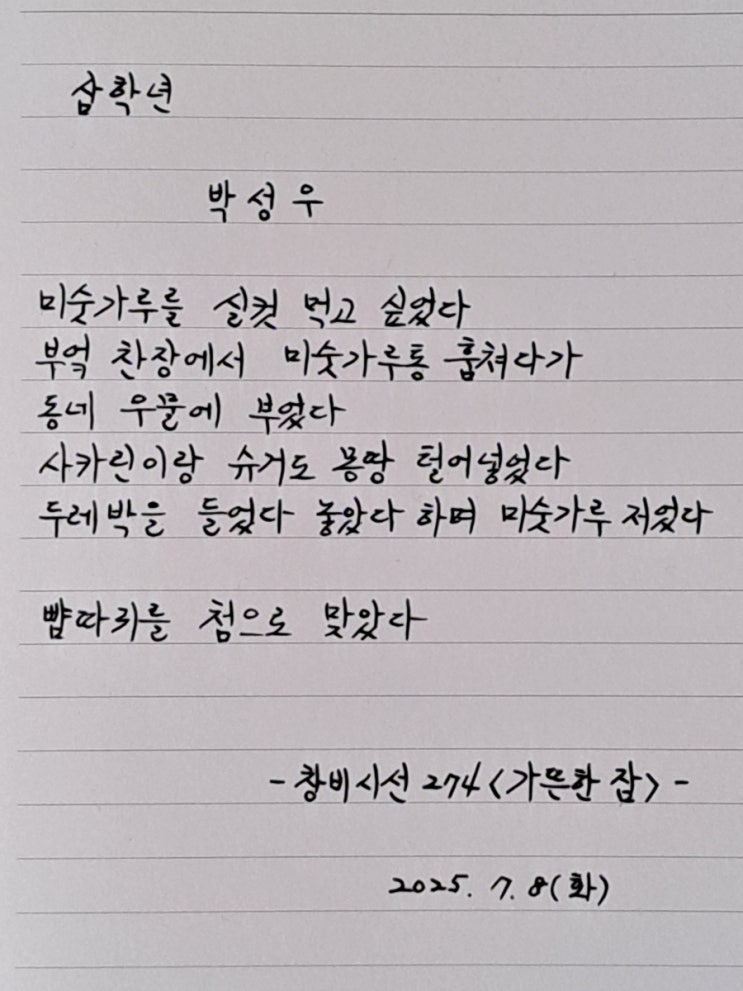 삼학년
박성우
미숫가루를 실컷 먹고 싶었다
부엌 찬장에서 미숫가루통 훔쳐다가
동네 우물에 부었다
사카린이랑 슈거도 몽땅 털어넣었다
두레박을 들었다 놓았다 하며 미숫가루 저었다
뺨따귀를 첨으로 맞았다
- 창비시선 274 <가뜬한 잠> -
2025. 7. 8(화)